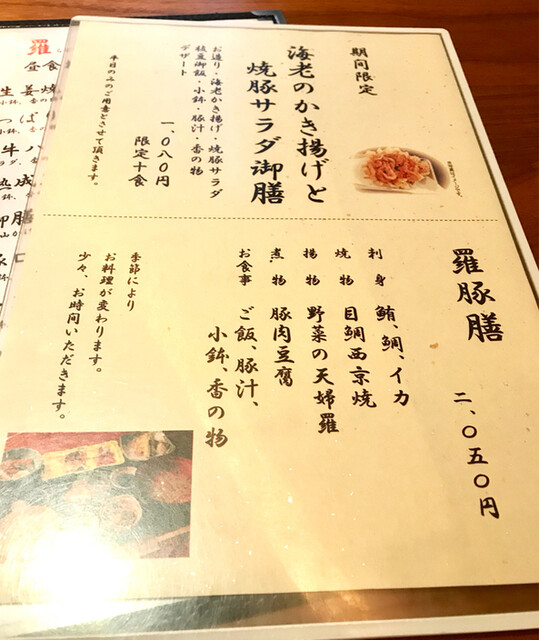 期間限定
海老のかき揚げと
焼豚サラダ御膳
お造り・海老かき揚げ・焼豚サラダ
枝豆御飯・小鉢・豚汁・香の物
デザート
一、〇八〇円
限定十食
平日のみのご用意とさせて頂きます。
羅豚膳
二、〇五〇円
刺身 鮪、鯛、イカ
焼物 目鯛西京焼
揚物 野菜の天婦羅
煮物 豚肉豆腐
お食事 ご飯、豚汁、
小鉢、香の物
季節により
お料理が変わります。
少々、お時間いただきます。
羅